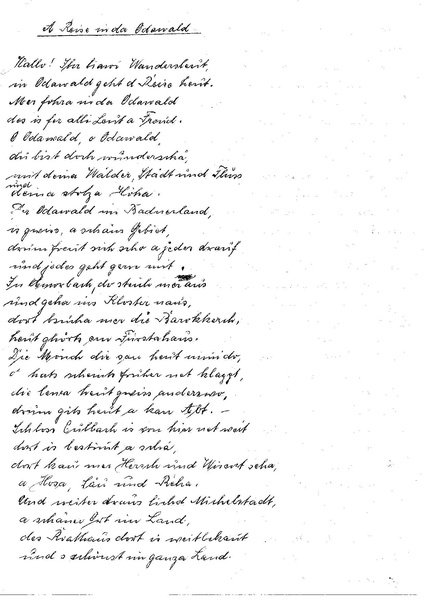 A Reise in da Odawald
Hallo! Ihr liawi Wandersleut,
in Odawald geht d Reise heut.
Mer fohra in da Odawald
des is fer alli Leut a Freud.
O Odawald, o Odawald,
du bist doch wunderschä,
mit deina Wälder, Städt und Fluss
und deina stolza Höha.
Der Odawald im Badnerland,
is gwiss, a schäns Gebiet,
drum freut sich scho a jeder drauf
und jedes geht gern mit.
In Amorbach, do steich mer aus
und geha ins Kloster naus,
dort bsucha mer die Barokkerch,
heut ghörts am Fürstahaus.
Die Mönch die san heut nimi do,
s hats scheints früher net klappt,
die lewa heut gwiss anderswo,
drum gits heut a kan Abt. –
Schloss Eulbach is von hier net weit
dort is bestimt a schä,
dort kau mer Hersch und Wisent seha,
a Hosa, Säu und Reha.
Und weiter draus lichd Michelstadt,
a schäner Ort im Land,
des Rathaus dort is weitbekant
und s schönst im ganza Land.